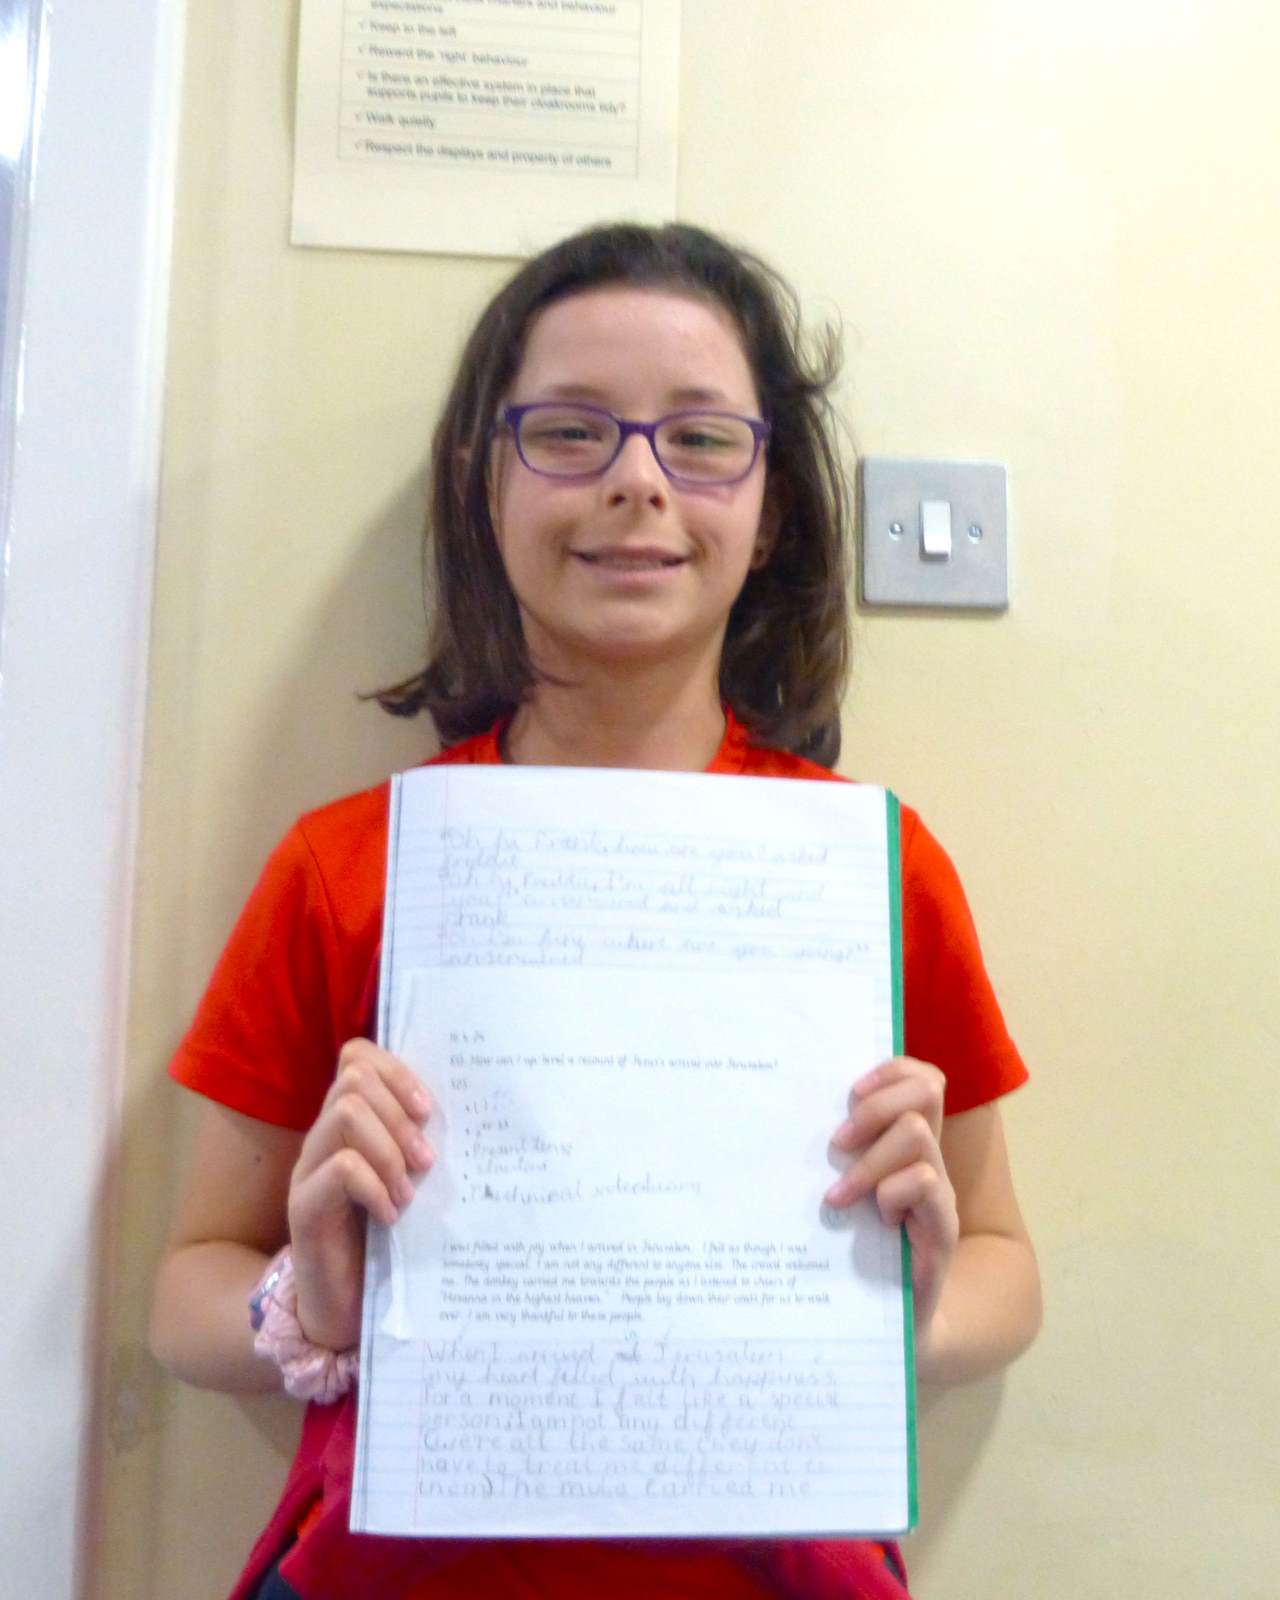 expectations
✓ Keep to the left
✓ Reward the 'right' behaviour
✓ Is there an effective system in place that
supports pupils to keep their cloakrooms tidy?
✓ Walk quietly
✓ Respect the displays and property of others
how are you? asked
I'm all right and
you answered and asked
Frank
where are you going?"
How can I up-level a recount of Jesus's arrival into Jerusalem?
• Present tense
I was filled with joy when I arrived in Jerusalem. I felt as though I was
somebody special. I am not any different to anyone else. The crowd welcomed
me. The donkey carried me towards the people as I listened to cheers of
"Hosanna in the highest heaven." People lay down their coats for us to walk
over. I am very thankful to these people.
When I arrived in Jerusalem
my heart filled with happiness.
for a moment I felt like a special
person; I am not any different
(we're all the same they don't
have to treat me different to
them) The mule carried me